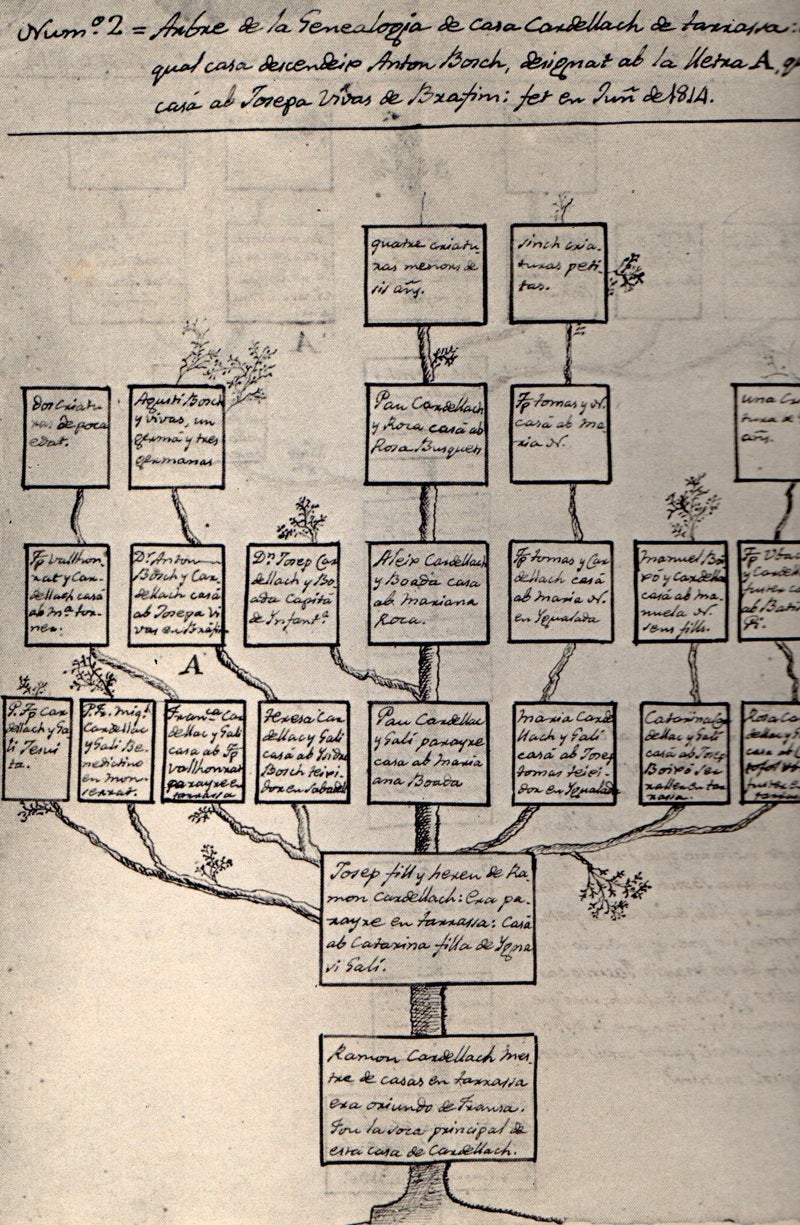 Num.º 2 = Arbre de la Genealogia de casa Cardellach de tarrassa:
qual casa descendeix Anton Bosch, designat ab la lletra A,
casá ab Josepa Vivas de Brafim: fet en Juñ de 1814.
quatre criatu-
ras menors de
sis añs.
sinch cria-
turas peti-
tas.
dos criatu-
ras de poca
edat.
Agustí Bosch
y Vivas, un
germá y tres
germanas
Pau Cardellach
y Roca casá ab
Rosa Busquets
Fp tomas y N.
casá ab Ma-
ria N.
una
añs.
Fp Vallhon-
rat y Car-
dellach casá
ab Mª tor-
ner.
Dr. Anton
Bosch y Car-
dellach casá
ab Josepa Vi-
vas en Brafim
Dn Josep Car-
dellach y Bo-
ada Capitá
de Infantª
Aleix Cardellach
y Boada casá
ab Mariana
Roca.
Fp tomas y Car-
dellach casá
ab Maria N.
en Ygualada
Manuel
y Cardella
casá ab Ma-
nuela N.
sens fills.
Fp
y Cardell
ab
A
P. Fp Car-
dellach y Ga-
lí Jesui-
ta.
P. Fr. Migl
Cardellac
y Galí Be-
nedictino
en Mon-
serrat.
Franca Car-
dellac y Galí
casá ab Fp
Vallhonrat
parayre en
tarrassa
teresa Car-
dellac y Galí
casá ab Ysidre
Bosch teixi-
dor en Sabadell
Pau Cardellac
y Galí parayre
casá ab Maria-
ana Boada
Maria Carde-
llach y Galí
casá ab Josep
tomas teixi-
dor en Ygualada
Catarina
dellac y Galí
casá ab Josep
en ta-
rrassa.
Rosa Ca
dellac y G
casá ab
Josep fill y hereu de Ra-
mon Cardellach: era pa-
rayre en tarrassa: Casá
ab Catarina filla de Ygna-
si Galí.
Ramon Cardellach Mes-
tre de casas en tarrassa
era oriundo de Fransa.
Fou la soca principal de
esta casa de Cardellach.